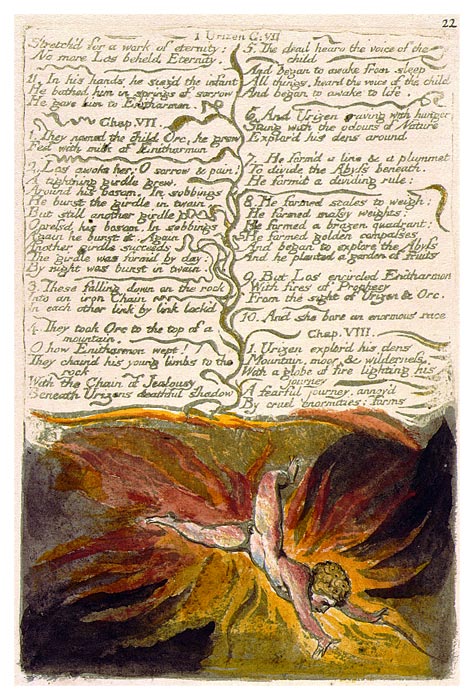 22
I Urizen C: VII
Stretch'd for a work of eternity;
No more Los beheld Eternity.
11. In his hands he seiz'd the infant
He bathed him in springs of sorrow
He gave him to Enitharmon.
Chap. VII.
1. They named the child Orc, he grew
Fed with milk of Enitharmon
2. Los awoke her; O sorrow & pain!
A tightning girdle grew,
Around his bosom. In sobbings
He burst the girdle in twain,
But still another girdle
Opressd his bosom. In sobbings
Again he burst it. Again
Another girdle succeeds
The girdle was form'd by day;
By night was burst in twain.
3. These falling down on the rock
Into an iron Chain
In each other link by link lock'd
4. They took Orc to the top of a
mountain.
O how Enitharmon wept!
They chain'd his young limbs to the
rock
With the Chain of Jealousy
Beneath Urizens deathful shadow
5. The dead heard the voice of the
child
And began to awake from sleep
All things. heard the voice of the child
And began to awake to life.
6. And Urizen craving with hunger
Stung with the odours of Nature
Explor'd his dens around
7. He form'd a line & a plummet
To divide the Abyss beneath.
He form'd a dividing rule:
8. He formed scales to weigh;
He formed massy weights;
He formed a brazen quadrant;
He formed golden compasses
And began to explore the Abyss
And he planted a garden of fruits
9. But Los encircled Enitharmon
With fires of Prophecy
From the sight of Urizen & Orc.
10. And she bore an enormous race
Chap. VIII.
1. Urizen explor'd his dens
Mountain, moor, & wilderness,
With a globe of fire lighting his
journey
A fearful journey, annoy'd
By cruel enormities: forms